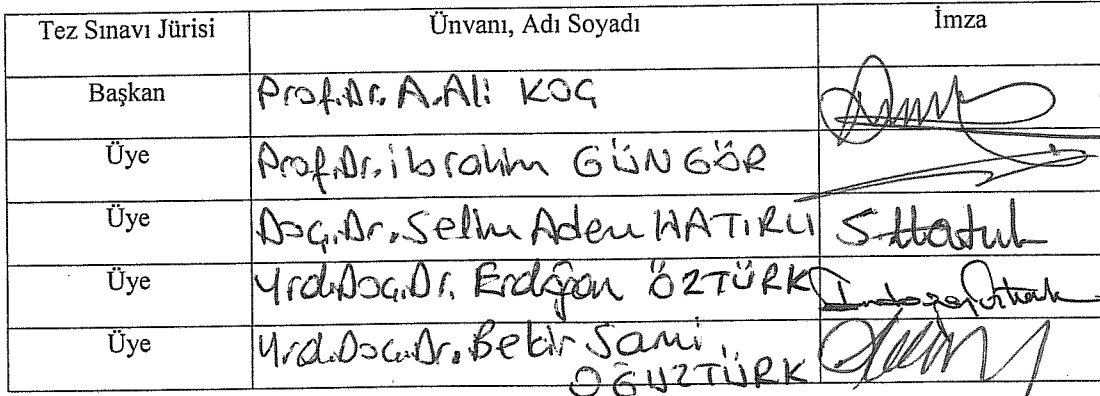 Tez Sınavı Jürisi Ünvanı, Adı Soyadı İmza
Başkan Prof.Dr. A.Ali KOÇ
Üye Prof.Dr. İbrahim GÜNGÖR
Üye Doç.Dr. Selim Adem HATIRLI S.Hatırlı
Üye Yrd.Doç.Dr. Erdoğan ÖZTÜRK
Üye Yrd.Doç.Dr. Bekir Sami
OĞUZTÜRK